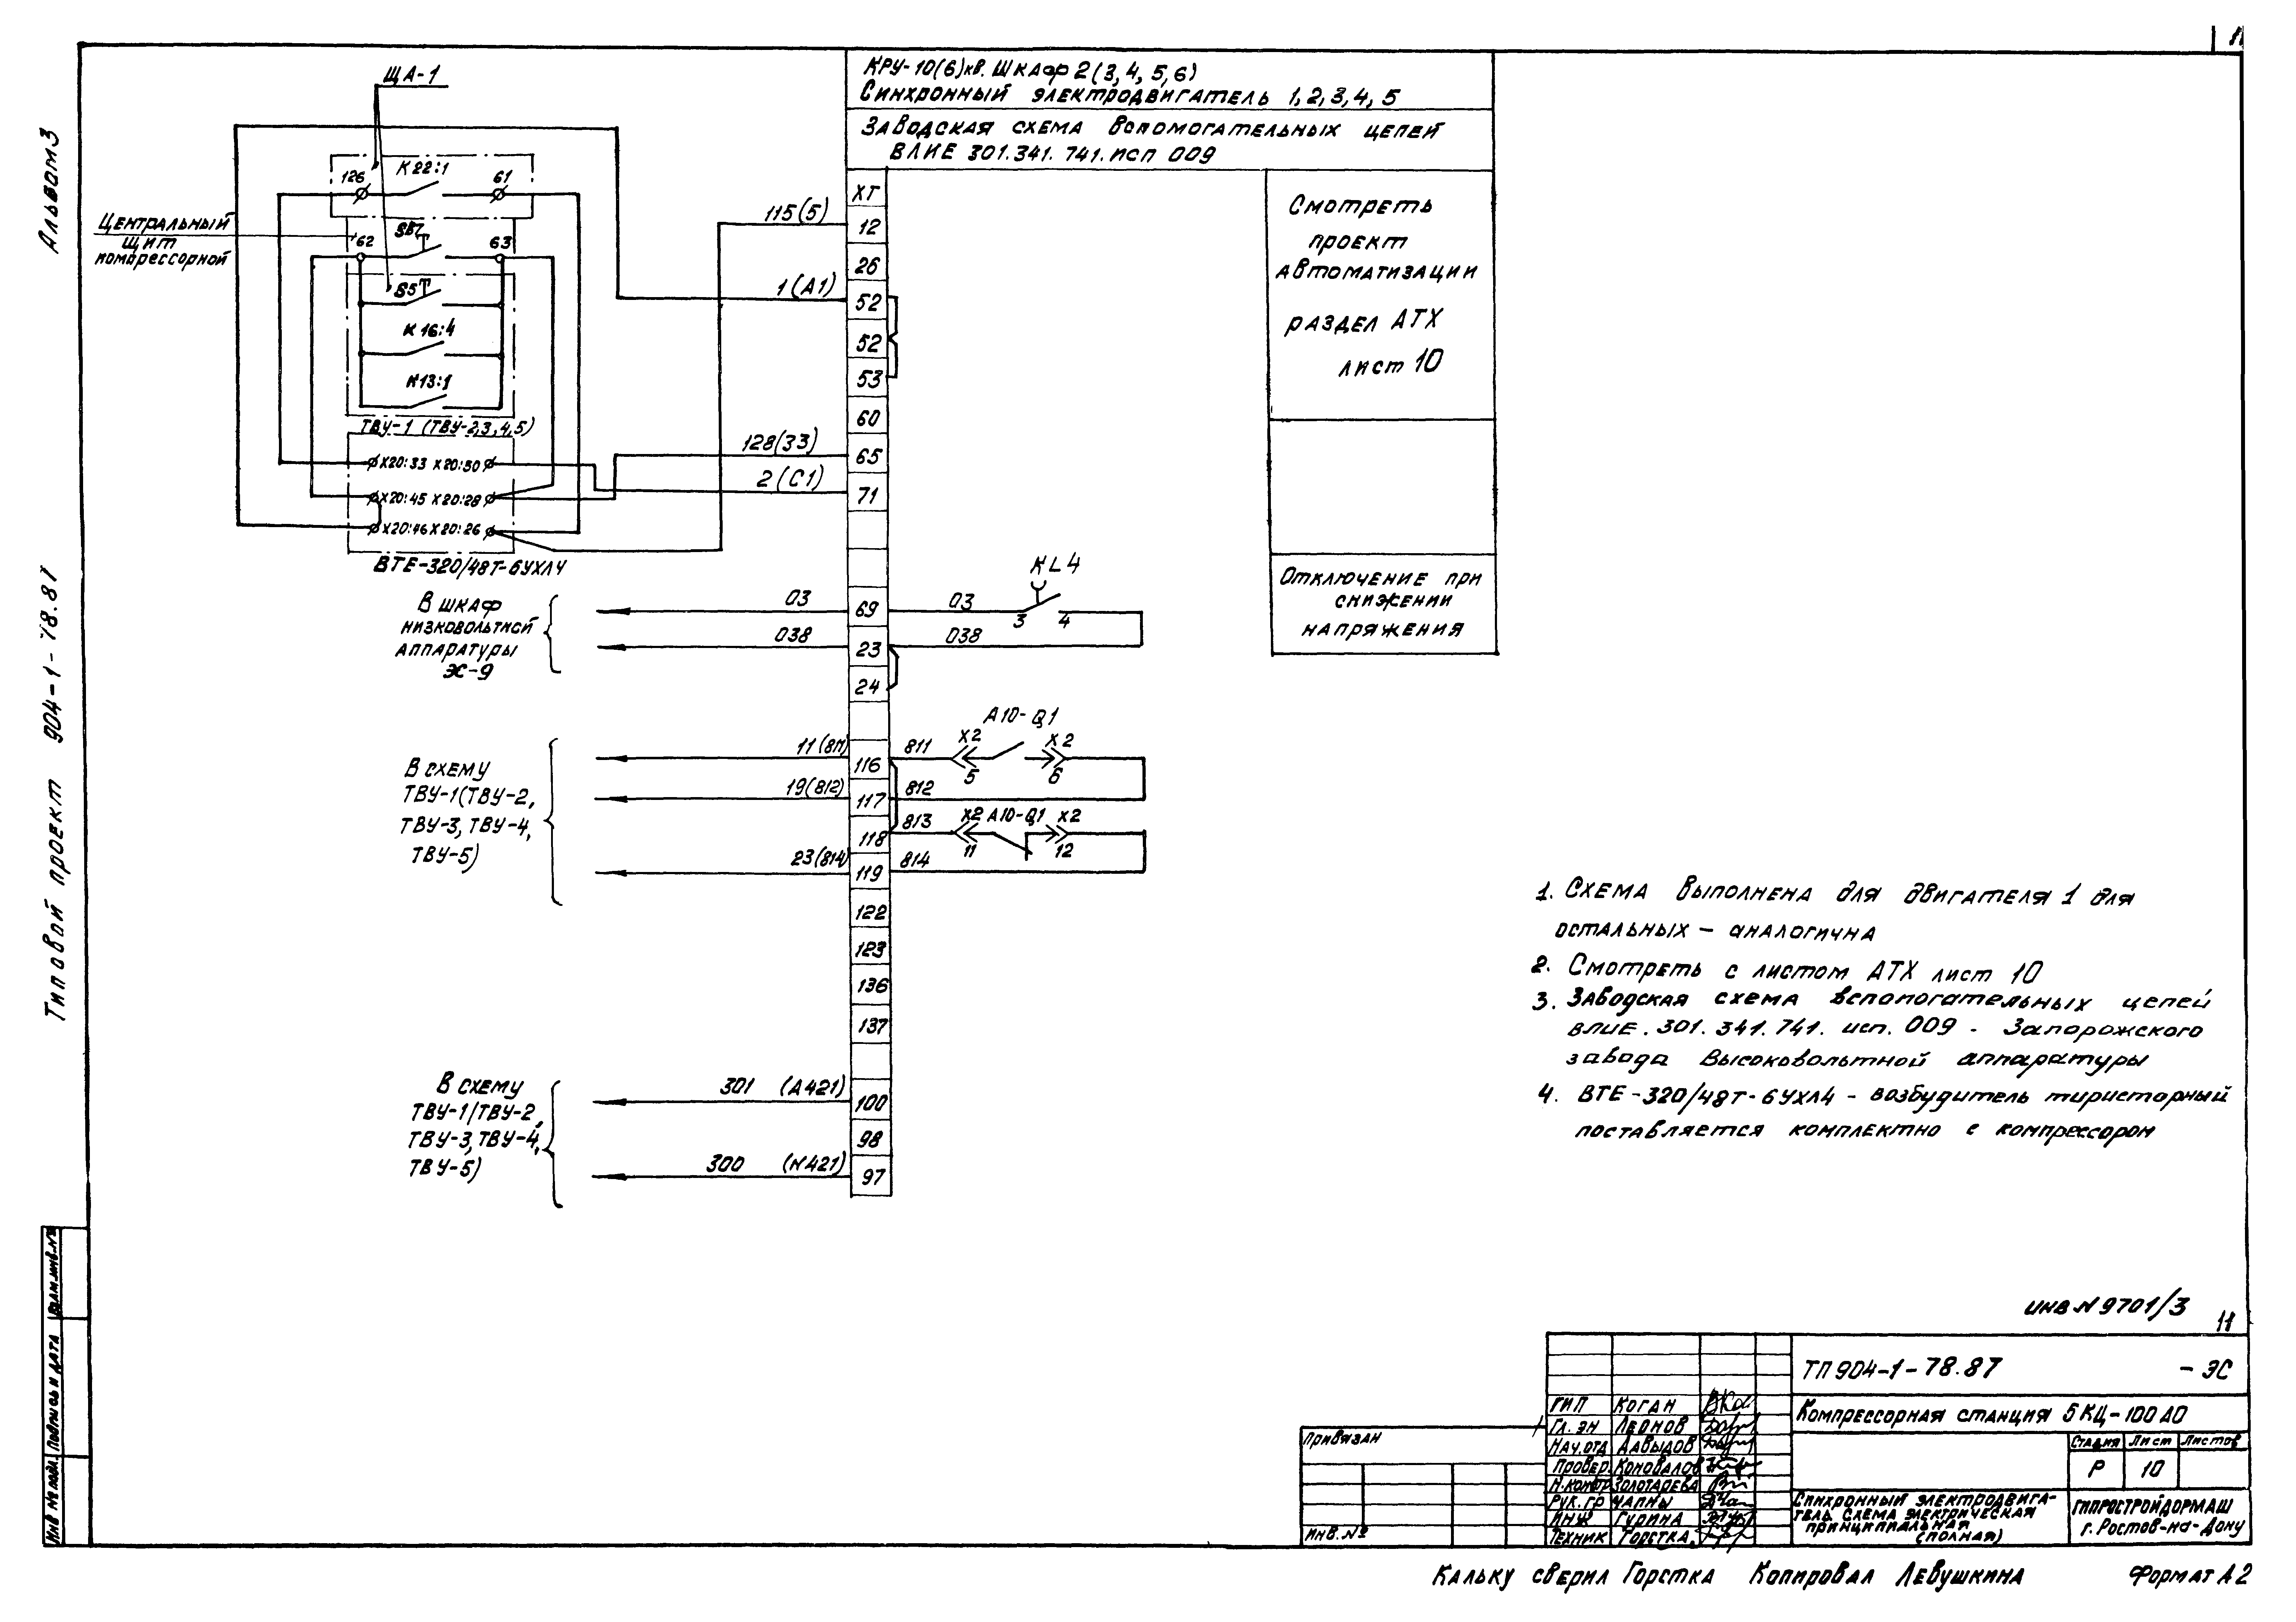 11
Альбом 3
Типовой проект 904-1-78.87
ЩА-1
КРУ-10(6)кв. Шкаф 2(3,4,5,6)
Синхронный электродвигатель 1,2,3,4,5
Заводская схема вспомогательных цепей
ВЛИЕ 301.341.741.исп 009
Центральный
щит
компрессорной
126 К22:1 61
62 SB7 63
S5
К16:4
К13:1
ТВУ-1 (ТВУ-2,3,4,5)
Х20:33 Х20:30
Х20:45 Х20:28
Х20:46 Х20:26
ВТЕ-320/48Т-6УХЛ4
115(5)
1(А1)
128(33)
2(С1)
ХТ
12
26
52
52
53
60
65
71
69
23
24
116
117
118
119
122
123
136
137
100
98
97
Смотреть
проект
автоматизации
раздел АТХ
лист 10
Отключение при
снижении
напряжения
В шкаф
низковольтной
аппаратуры
ЭС-9
03
038
03
038
KL4
3 4
В схему
ТВУ-1(ТВУ-2,
ТВУ-3, ТВУ-4,
ТВУ-5)
11(811)
19(812)
23(814)
811
812
813
814
А10-Q1
Х2 Х2
5 6
Х2 А10-Q1 Х2
11 12
В схему
ТВУ-1(ТВУ-2,
ТВУ-3, ТВУ-4,
ТВУ-5)
301 (А421)
300 (N421)
1. Схема выполнена для двигателя 1 для
остальных - аналогична
2. Смотреть с листом АТХ лист 10
3. Заводская схема вспопогательных цепей
ВЛИЕ.301.341.741. исп. 009 - Запорожского
завода высоковольтной аппаратуры
4. ВТЕ-320/48Т-6УХЛ4 - возбудитель тиристорный
поставляется комплектно с компрессором
инв N 9701/3
11
ТП 904-1-78.87 -ЭС
Компрессорная станция 5КЦ-100А0
ГИП Коган
Гл. эн Леонов
Нач.отд Давыдов
Провер Коновалов
Н.контр Золотарева
Рук.гр Чапны
Инж Гурина
Техник Горстка
Привязан
Инв. №
Стадия Лист Листов
Р 10
Синхронный электродвига-
тель схема электрическая
принципиальная
(полная)
ГИПРОСТРОЙДОРМАШ
г. Ростов-на-Дону
Инв № подл. Подпись и дата Взам.инв.№
Кальку сверил Горстка Копировал Левушкина Формат А2